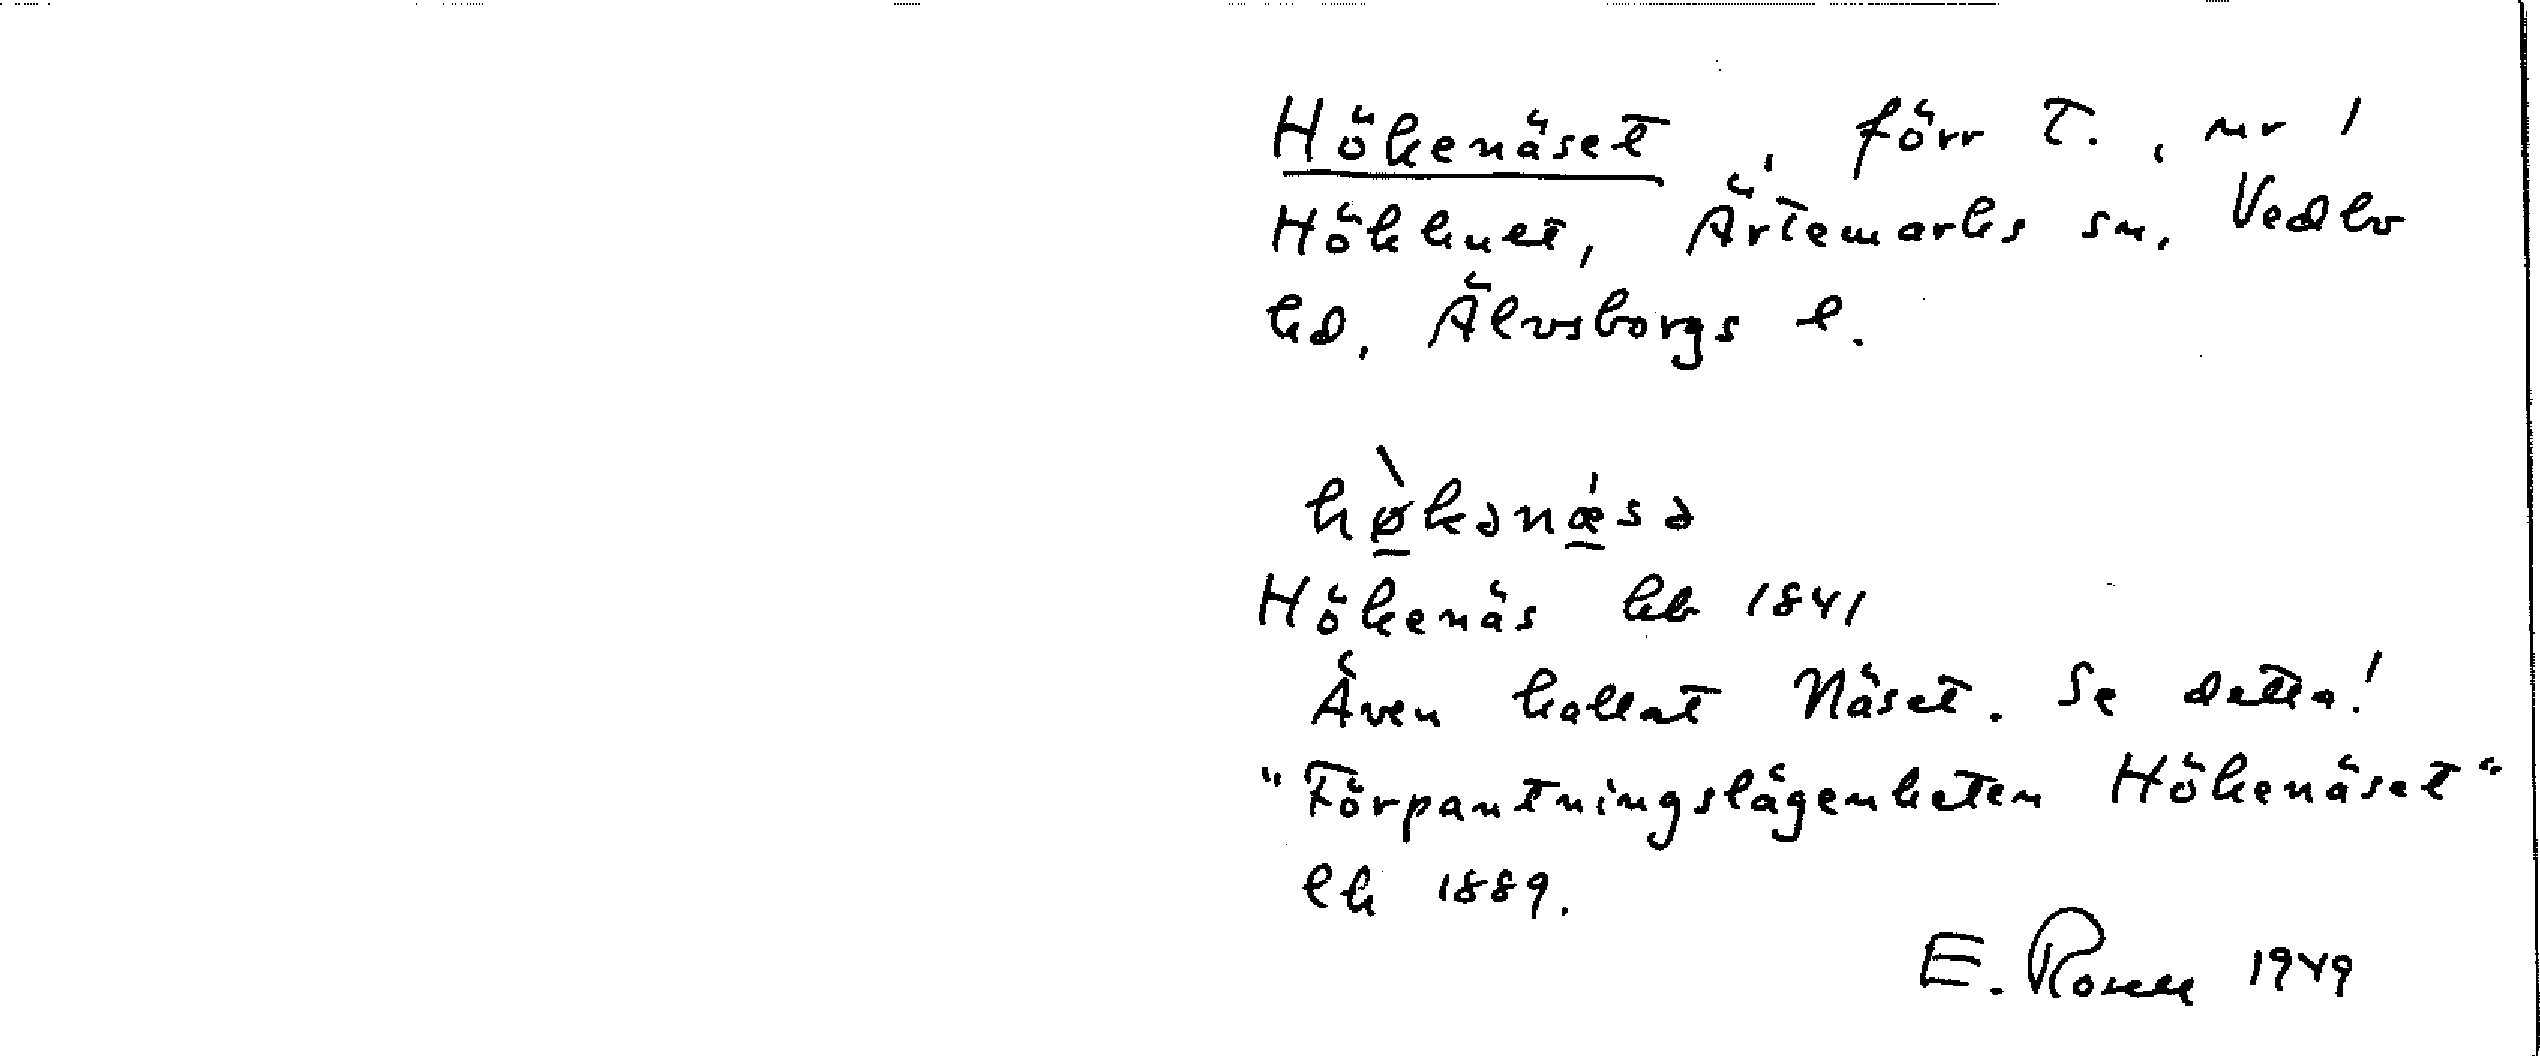 Hökenäset, förr T., nr 1
Hökhuet, Ärtemarks sn, Vedbo
hd, Älvsborgs l.
hø̀kənǽsə
Hökenäs kb 1841
Även kallat Näset. Se detta!
"Förpantningslägenheten Höhenäset"
lk 1889.
E. Rosell 1949